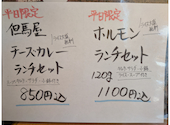 平日限定
但馬屋
チーズカレー
ランチセット
850円込
平日限定
ホルモン
ランチセット
120g
1100円込